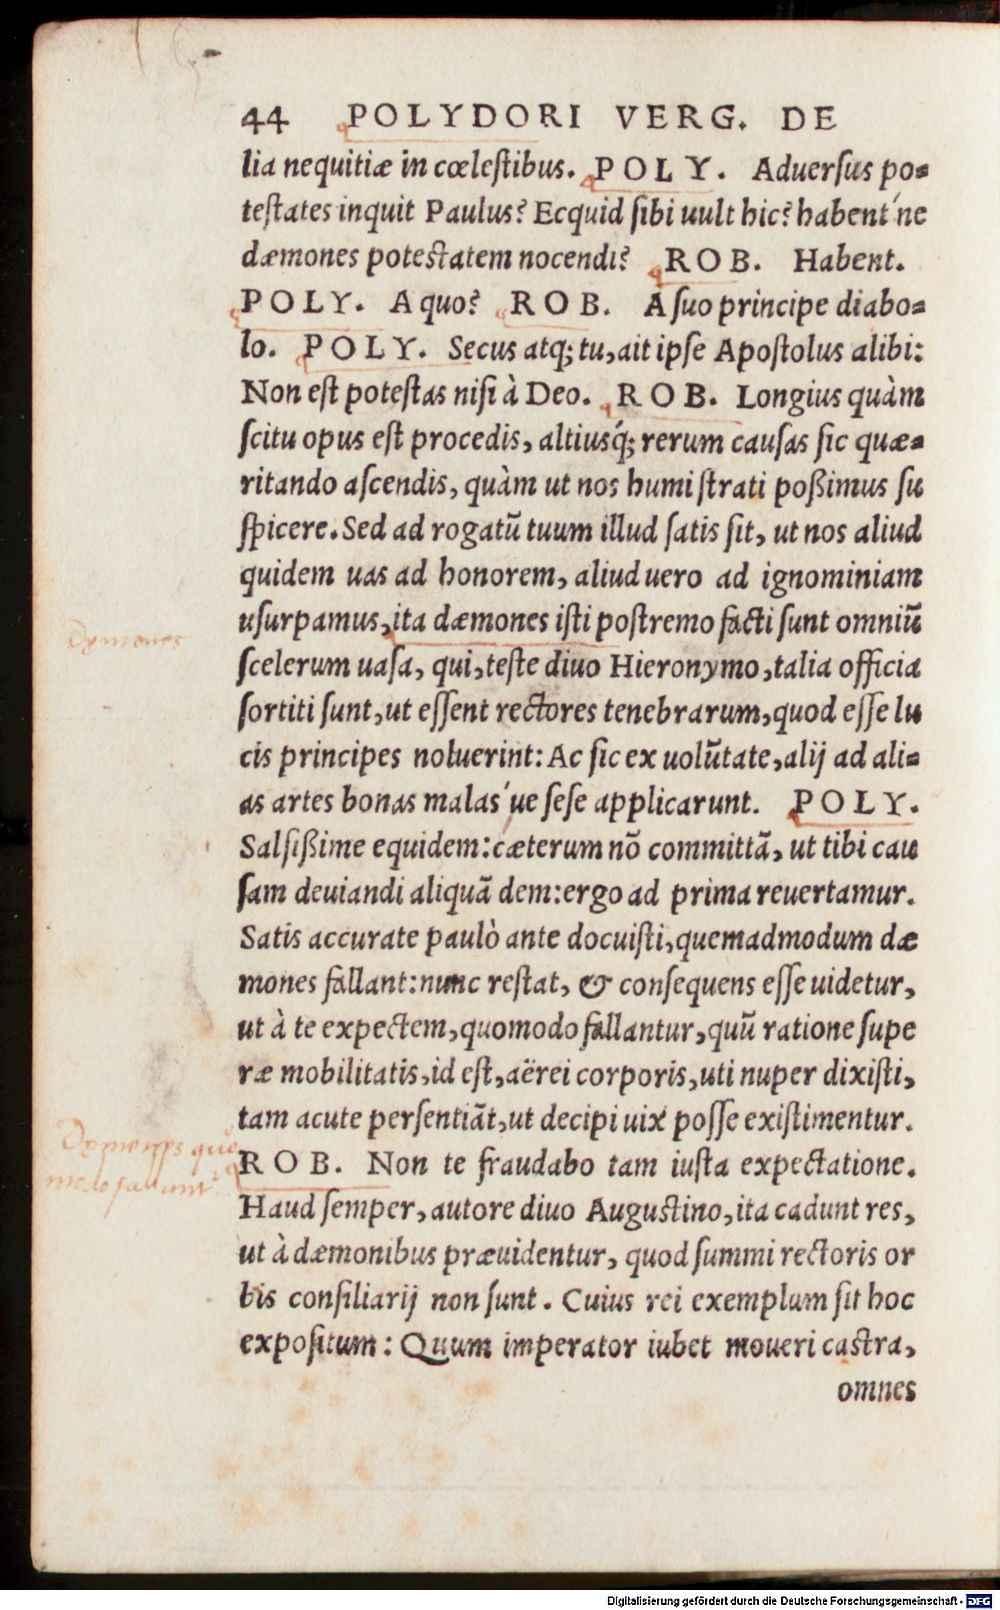 44 POLYDORI VERG. DE
lia nequitiæ in cœlestibus. POLY. Aduersus po=
testates inquit Paulus? Ecquid sibi uult hic? habent'ne
dæmones potestatem nocendi? ROB. Habent.
POLY. A quo? ROB. A suo principe diabo=
lo. POLY. Secus atq; tu, ait ipse Apostolus alibi:
Non est potestas nisi à Deo. ROB. Longius quàm
scitu opus est procedis, altiusq́; rerum causas sic quæ=
ritando ascendis, quàm ut nos humi strati poßimus su
spicere. Sed ad rogatũ tuum illud satis sit, ut nos aliud
quidem uas ad honorem, aliud uero ad ignominiam
usurpamus, ita dæmones isti postremo facti sunt omniũ
scelerum uasa, qui, teste diuo Hieronymo, talia officia
sortiti sunt, ut essent rectores tenebrarum, quod esse lu
cis principes noluerint: Ac sic ex uolũtate, alij ad ali=
as artes bonas malas'ue sese applicarunt. POLY.
Salsißime equidem: cæterum nõ committã, ut tibi cau
sam deuiandi aliquã dem: ergo ad prima reuertamur.
Satis accurate paulò ante docuisti, quemadmodum dæ
mones fallant: nunc restat, & consequens esse uidetur,
ut à te expectem, quomodo fallantur, quũ ratione supe
ræ mobilitatis, id est, aërei corporis, uti nuper dixisti,
tam acute persentiãt, ut decipi uix posse existimentur.
ROB. Non te fraudabo tam iusta expectatione.
Haud semper, autore diuo Augustino, ita cadunt res,
ut à dæmonibus præuidentur, quod summi rectoris or
bis consiliarij non sunt. Cuius rei exemplum sit hoc
expositum: Quum imperator iubet moueri castra,
omnes
Dęmones
Dęmones quo
modo fallunt.
Digitalisierung gefördert durch die Deutsche Forschungsgemeinschaft - DFG